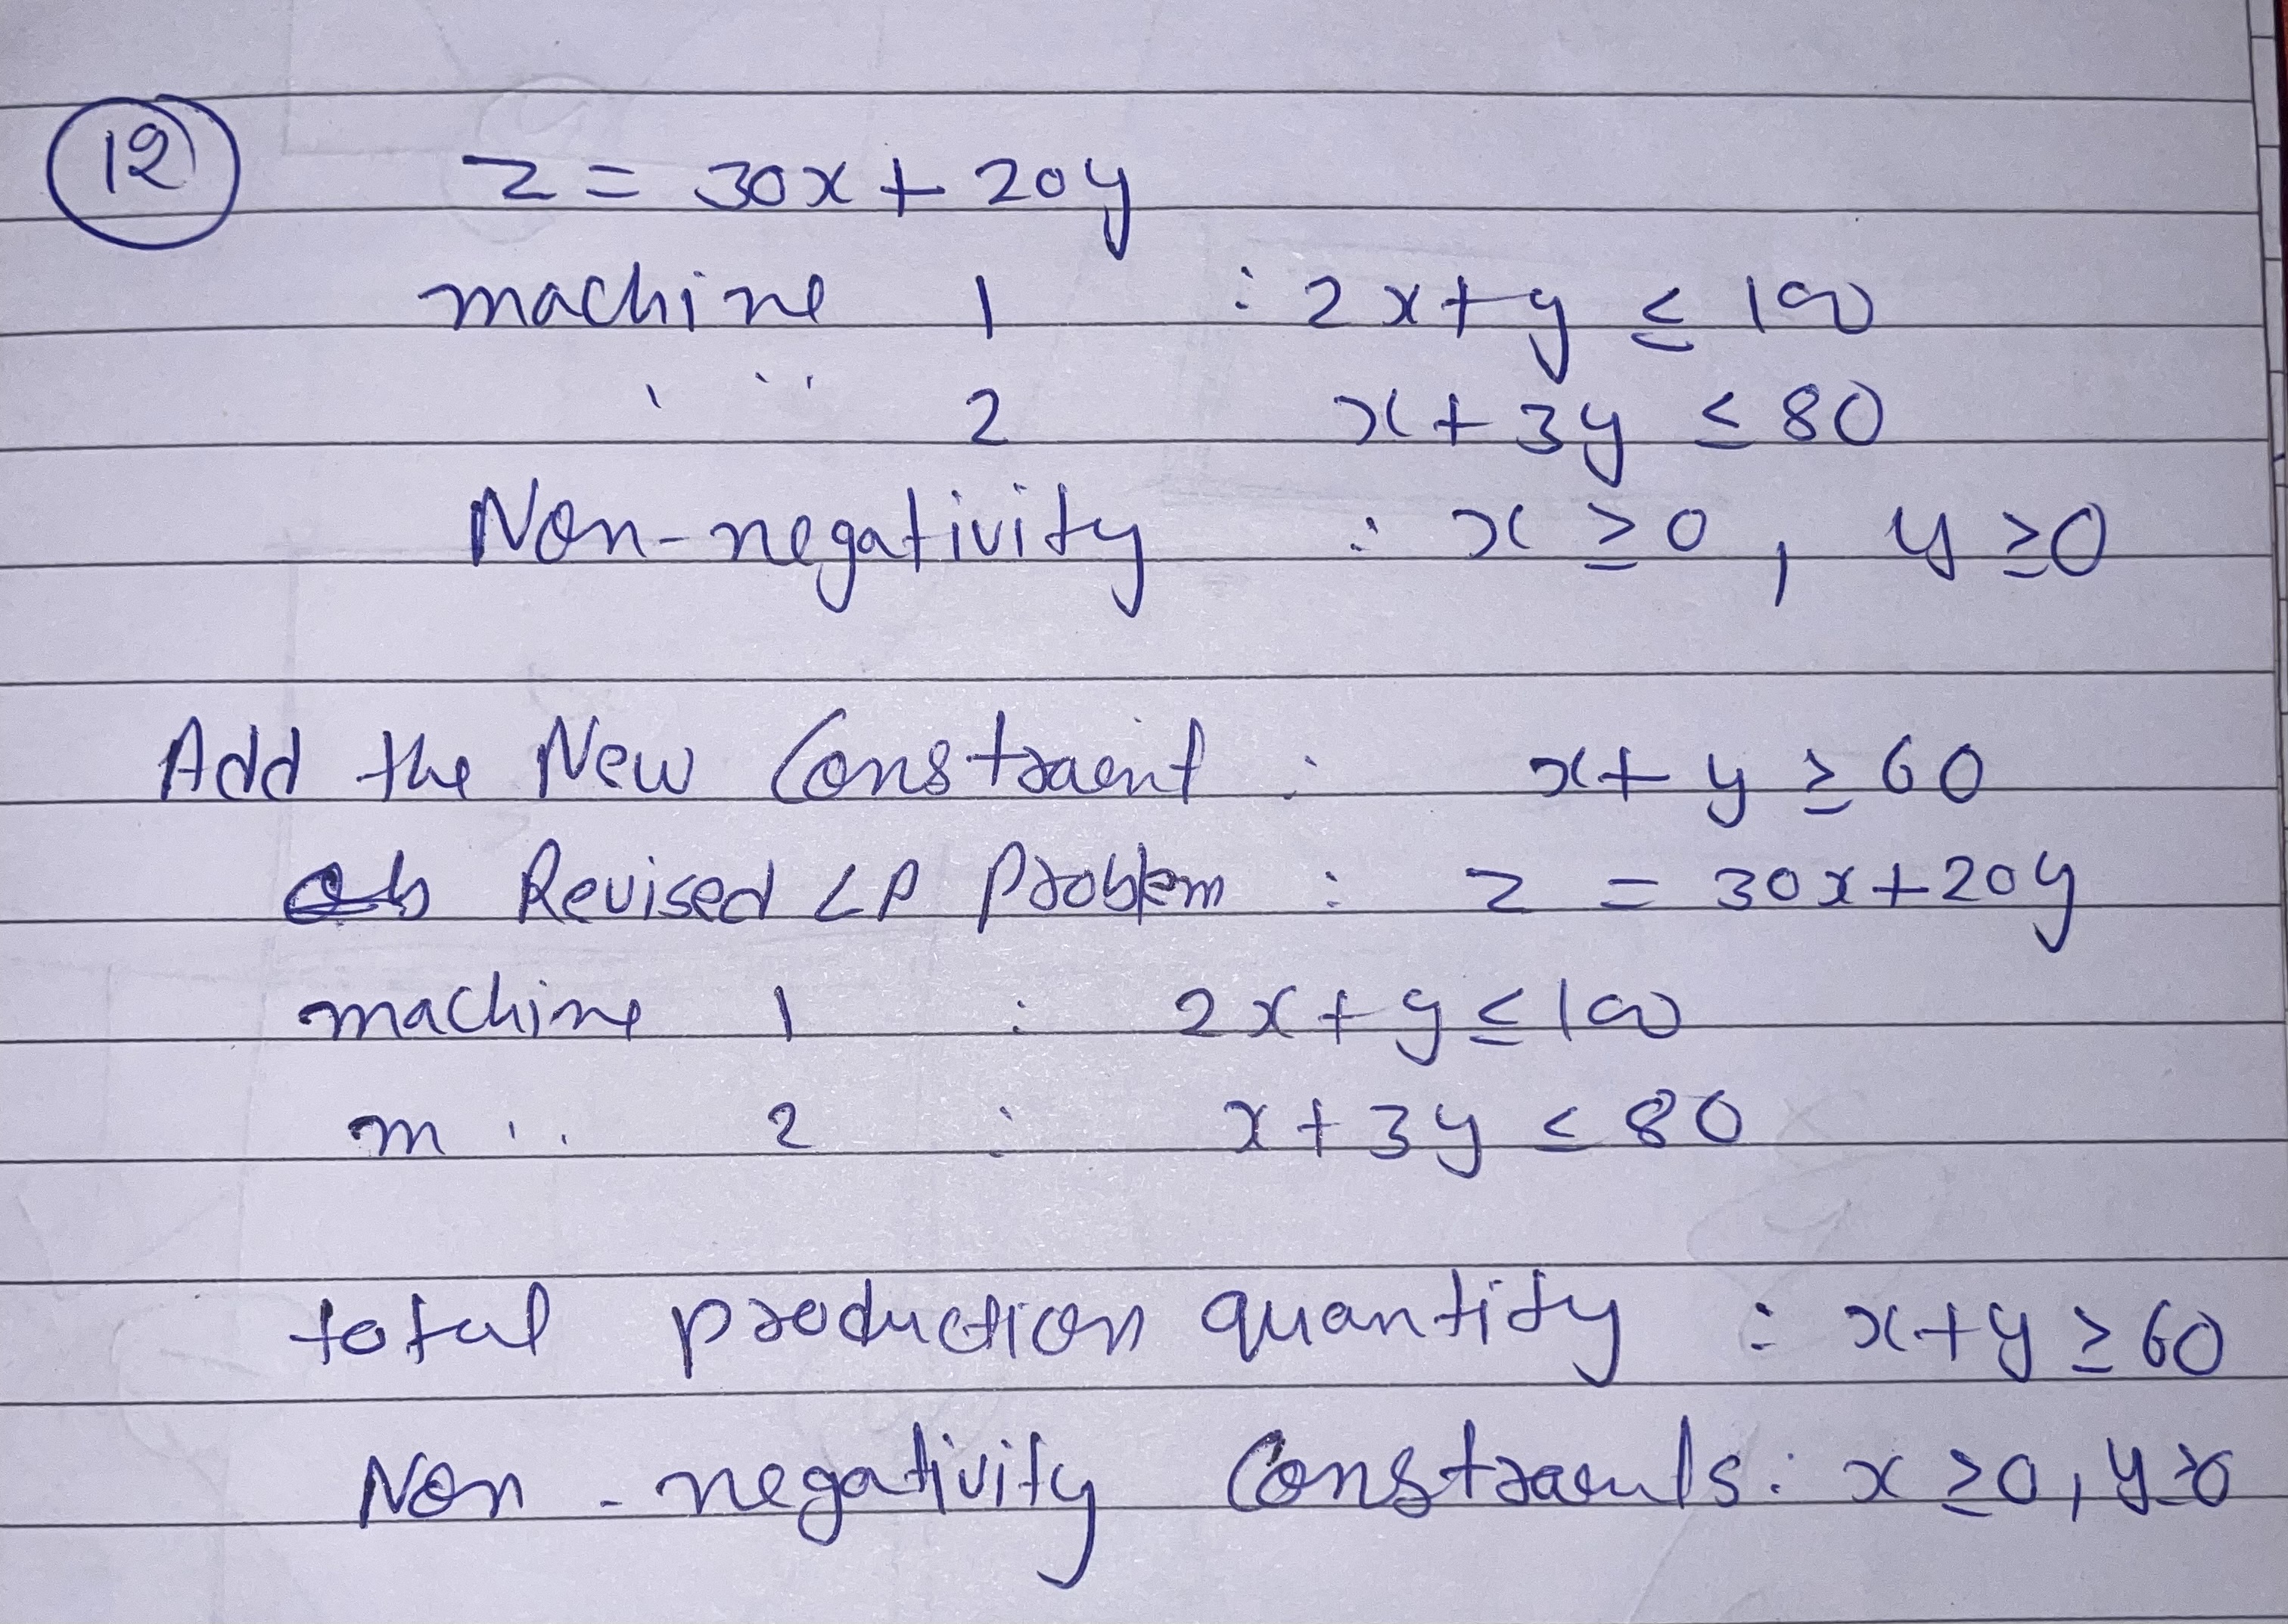 12 z = 30x + 20y
machine 1 : 2x + y ≤ 100
2 x + 3y ≤ 80
Non-negativity : x ≥ 0, y ≥ 0
Add the New Constraent : x + y ≥ 60
Revised LP Problem : z = 30x + 20y
machine 1 : 2x + y ≤ 100
m .. 2 : x + 3y ≤ 80
total production quantity : x + y ≥ 60
Non-negativity Constraents : x ≥ 0, y ≥ 0